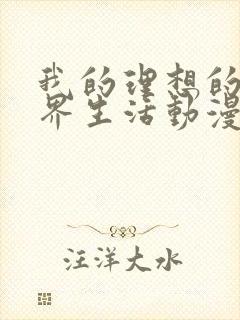 我的理想的
界生活動漫
汪洋大水